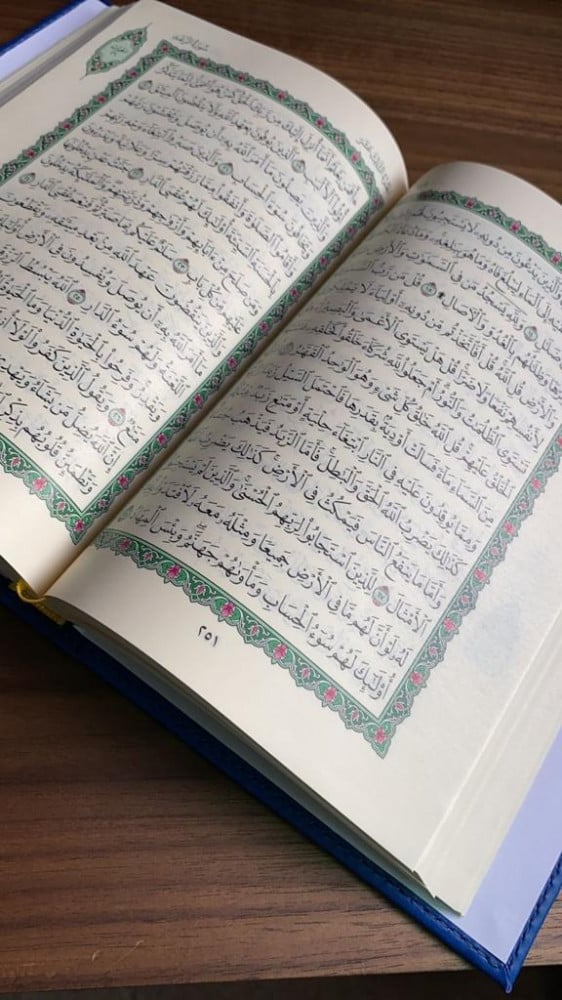 وَٱلَّذِينَ يَدْعُونَ مِن دُونِهِۦ لَا يَسْتَجِيبُونَ لَهُم
إِلَى ٱلْمَآءِ لِيَبْلُغَ فَاهُ وَمَا هُوَ بِبَٰلِغِهِۦ
ضَلَٰلٍ ١٤ وَلِلَّهِ يَسْجُدُ مَن فِى ٱلسَّمَٰوَٰتِ وَٱلْأَرْضِ
وَظِلَٰلُهُم بِٱلْغُدُوِّ وَٱلْءَاصَالِ ١٥ قُلْ مَن رَّبُّ
وَٱلْأَرْضِ قُلِ ٱللَّهُ قُلْ أَفَٱتَّخَذْتُم مِّن دُونِهِۦٓ أَوْلِيَآءَ لَا
لِأَنفُسِهِمْ نَفْعًا وَلَا ضَرًّا قُلْ هَلْ يَسْتَوِى ٱلْأَعْمَىٰ وَٱلْبَصِيرُ
تَسْتَوِى ٱلظُّلُمَٰتُ وَٱلنُّورُ أَمْ جَعَلُوا۟ لِلَّهِ شُرَكَآءَ خَلَقُوا۟ كَخَلْقِهِۦ
ٱلْخَلْقُ عَلَيْهِمْ قُلِ ٱللَّهُ خَٰلِقُ كُلِّ شَىْءٍ وَهُوَ ٱلْوَٰحِدُ ٱلْقَهَّٰرُ ١٦
مِنَ ٱلسَّمَآءِ مَآءً فَسَالَتْ أَوْدِيَةٌۢ بِقَدَرِهَا فَٱحْتَمَلَ ٱلسَّيْلُ
وَمِمَّا يُوقِدُونَ عَلَيْهِ فِى ٱلنَّارِ ٱبْتِغَآءَ حِلْيَةٍ أَوْ مَتَٰعٍ زَبَدٌ
كَذَٰلِكَ يَضْرِبُ ٱللَّهُ ٱلْحَقَّ وَٱلْبَٰطِلَ فَأَمَّا ٱلزَّبَدُ فَيَذْهَبُ
وَأَمَّا مَا يَنفَعُ ٱلنَّاسَ فَيَمْكُثُ فِى ٱلْأَرْضِ كَذَٰلِكَ يَضْرِبُ
ٱلْأَمْثَالَ ١٧ لِلَّذِينَ ٱسْتَجَابُوا۟ لِرَبِّهِمُ ٱلْحُسْنَىٰ وَٱلَّذِينَ لَمْ
لَهُۥ لَوْ أَنَّ لَهُم مَّا فِى ٱلْأَرْضِ جَمِيعًا وَمِثْلَهُۥ مَعَهُۥ لَٱفْتَدَوْا۟
أُو۟لَٰٓئِكَ لَهُمْ سُوٓءُ ٱلْحِسَابِ وَمَأْوَىٰهُمْ جَهَنَّمُ وَبِئْسَ ٱلْمِهَادُ
٢٥١
سورة الرعد
أَفَمَن يَعْلَمُ أَنَّمَآ أُنزِلَ إِلَيْكَ مِن رَّبِّكَ ٱلْحَقُّ كَمَنْ هُوَ أَعْمَىٰٓ إِنَّمَا يَتَذَكَّرُ
أُو۟لُوا۟ ٱلْأَلْبَٰبِ ١٩ ٱلَّذِينَ يُوفُونَ بِعَهْدِ ٱللَّهِ وَلَا يَنقُضُونَ ٱلْمِيثَٰقَ ٢٠
وَٱلَّذِينَ يَصِلُونَ مَآ أَمَرَ ٱللَّهُ بِهِۦٓ أَن يُوصَلَ وَيَخْشَوْنَ رَبَّهُمْ
وَيَخَافُونَ سُوٓءَ ٱلْحِسَابِ ٢١ وَٱلَّذِينَ صَبَرُوا۟ ٱبْتِغَآءَ وَجْهِ رَبِّهِمْ
وَأَقَامُوا۟ ٱلصَّلَوٰةَ وَأَنفَقُوا۟ مِمَّا رَزَقْنَٰهُمْ سِرًّا وَعَلَانِيَةً وَيَدْرَءُونَ
بِٱلْحَسَنَةِ ٱلسَّيِّئَةَ أُو۟لَٰٓئِكَ لَهُمْ عُقْبَى ٱلدَّارِ ٢٢ جَنَّٰتُ عَدْنٍ يَدْخُلُونَهَا
وَمَن صَلَحَ مِنْ ءَابَآئِهِمْ وَأَزْوَٰجِهِمْ وَذُرِّيَّٰتِهِمْ وَٱلْمَلَٰٓئِكَةُ يَدْخُلُونَ عَلَيْهِم
مِّن كُلِّ بَابٍ ٢٣ سَلَٰمٌ عَلَيْكُم بِمَا صَبَرْتُمْ فَنِعْمَ عُقْبَى ٱلدَّارِ ٢٤
وَٱلَّذِينَ يَنقُضُونَ عَهْدَ ٱللَّهِ مِنۢ بَعْدِ مِيثَٰقِهِۦ وَيَقْطَعُونَ
مَآ أَمَرَ ٱللَّهُ بِهِۦٓ أَن يُوصَلَ وَيُفْسِدُونَ فِى ٱلْأَرْضِ أُو۟لَٰٓئِكَ لَهُمُ
ٱللَّعْنَةُ وَلَهُمْ سُوٓءُ ٱلدَّارِ ٢٥ ٱللَّهُ يَبْسُطُ ٱلرِّزْقَ
وَيَقْدِرُ وَفَرِحُوا۟ بِٱلْحَيَوٰةِ ٱلدُّنْيَا وَمَا ٱلْحَيَوٰةُ
مَتَٰعٌ ٢٦ وَيَقُولُ ٱلَّذِينَ كَفَرُوا۟ لَوْلَآ
إِنَّ ٱللَّهَ يُضِلُّ مَن يَشَآءُ وَيَهْدِىٓ
وَتَطْمَئِنُّ قُلُوبُهُم بِذِكْرِ